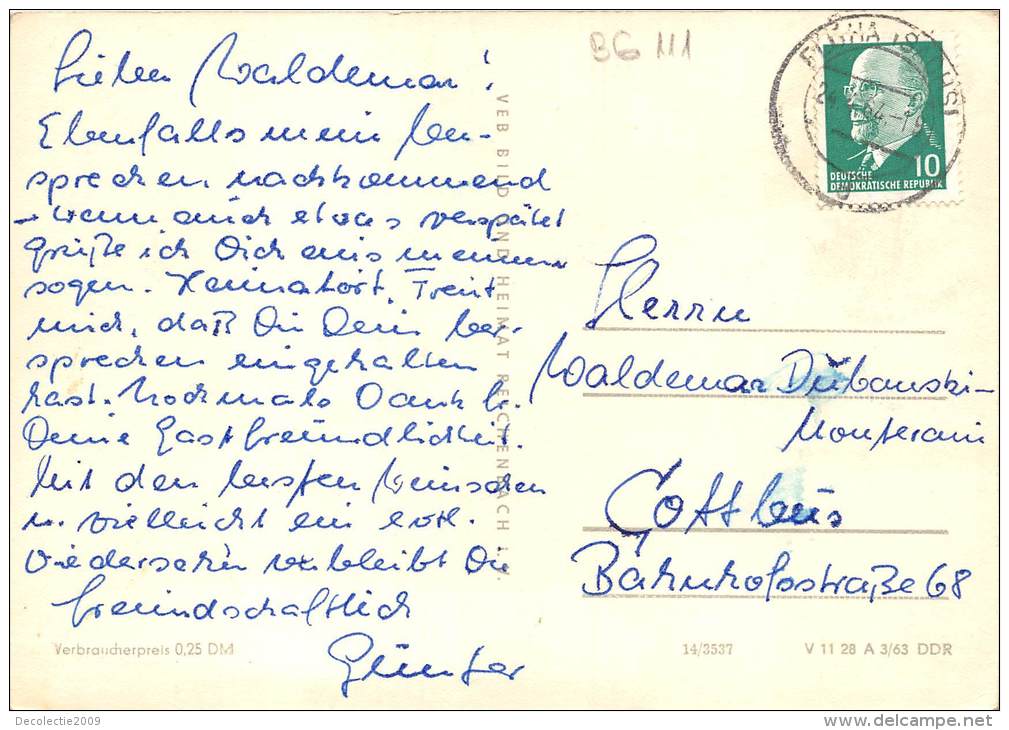 BG 111
Lieber Waldemar!
Ebenfalls mein Ver-
sprechen, nachkommend
– wenn auch etwas verspätet
grüße ich Dich aus meinem
sogen. Heimatort. Freut
mich, daß Du Dein Ver-
sprechen eingehalten
hast. Nochmals Dank f.
Deine Gastfreundlichkeit.
Mit den besten Wünschen
u. vielleicht ein evtl.
Wiedersehen verbleibt Dir
freundschaftlich
Günter
Verbraucherpreis 0,25 DM
VEB BILD UND HEIMAT REICHENBACH I. V.
DEUTSCHE
DEMOKRATISCHE REPUBLIK
10
Herrn
Waldemar Dubanski-
Cottbus
Bahnhofsstraße 68
14/3537
V 11 28 A 3/63 DDR
Decolectie2009